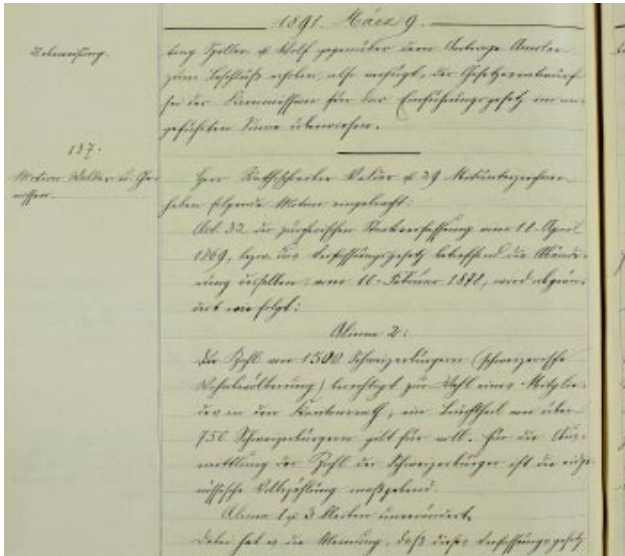 1891. März 9.
Ueberweisung.
trag Geller & Wolf gegenüber dem Antrage Amsler
zum Beschluß erhoben, also verfügt, der Gesetzesentwurf
sei der Kommission für das Einführungsgesetz im an-
geführten Sinne überwiesen.
137.
Motion Walder u. Ge-
nossen.
Herr Rathsschreiber Walder & 29 Mitunterzeichner
haben folgende Motion eingebracht:
Art. 32 der zürcherischen Staatsverfassung vom 18. April
1869, bezw. das Verfassungsgesetz betreffend die Abände-
rung desselben, vom 10. Februar 1878, wird abgeän-
dert wie folgt:
Alinea 2:
Die Zahl von 1500 Schweizerbürgern (schweizerische
Wohnbevölkerung) berechtigt zur Wahl eines Mitglie-
des in den Kantonsrath, ein Bruchtheil von über
750 Schweizerbürgern gilt für voll. Für die Aus-
mittlung der Zahl der Schweizerbürger ist die eidge-
nössische Volkszählung maßgebend.
Alinea 1 & 3 bleiben unverändert.
Dabei hat es die Meinung, daß dieses Verfassungsgesetz